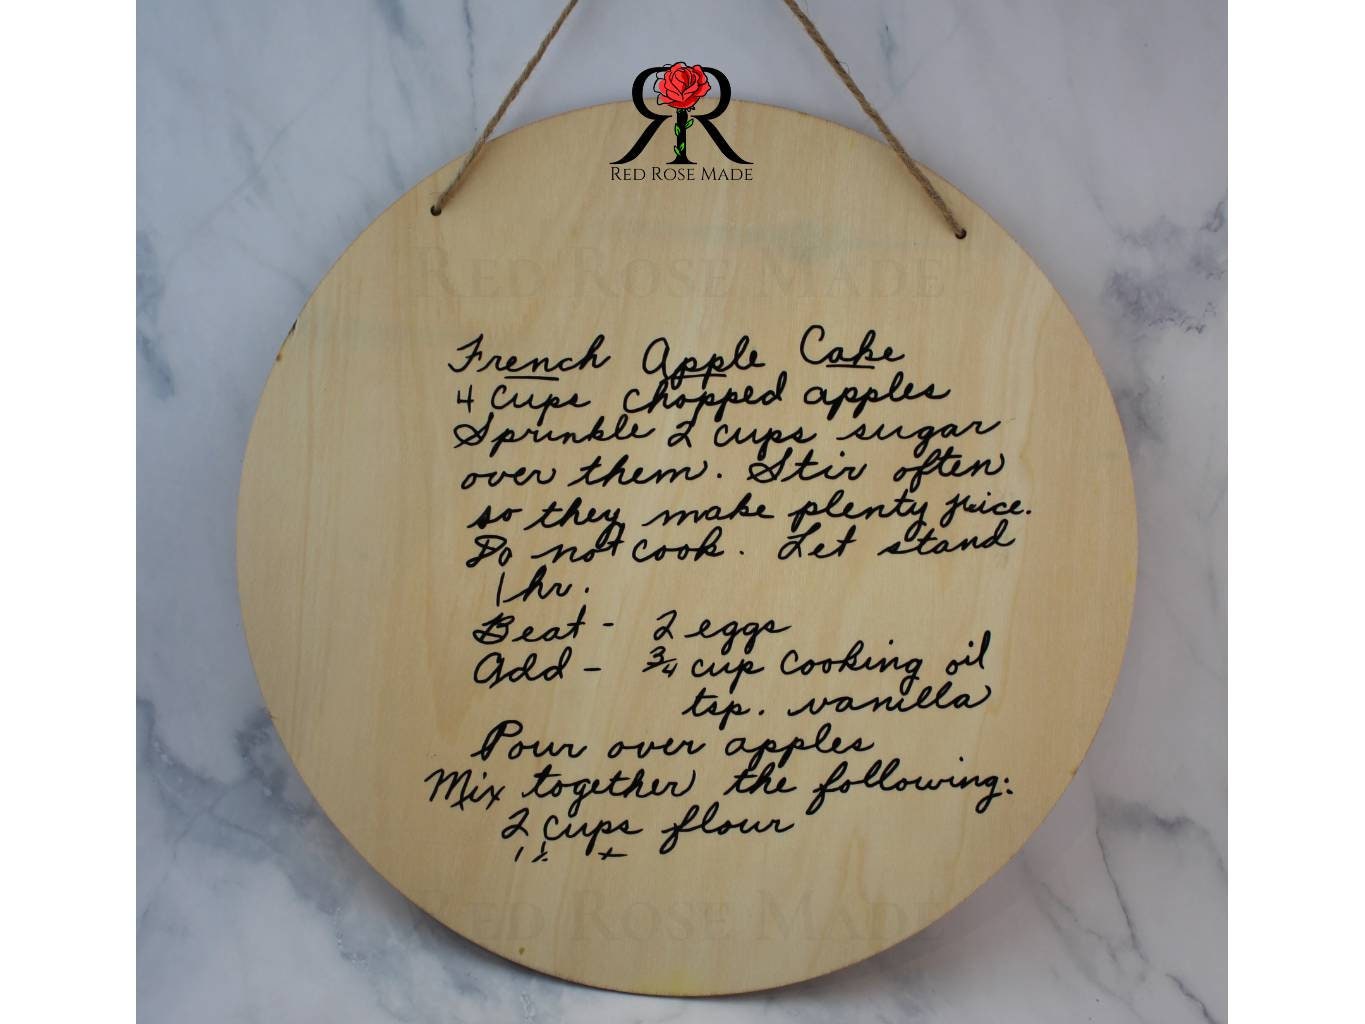 RED ROSE MADE
RED ROSE MADE
French Apple Cake
4 cups chopped apples
Sprinkle 2 cups sugar
over them. Stir often
so they make plenty juice.
Do not cook. Let stand
1 hr.
Beat - 2 eggs
Add - 3/4 cup cooking oil
tsp. vanilla
Pour over apples
Mix together the following:
2 cups flour
RED ROSE MADE